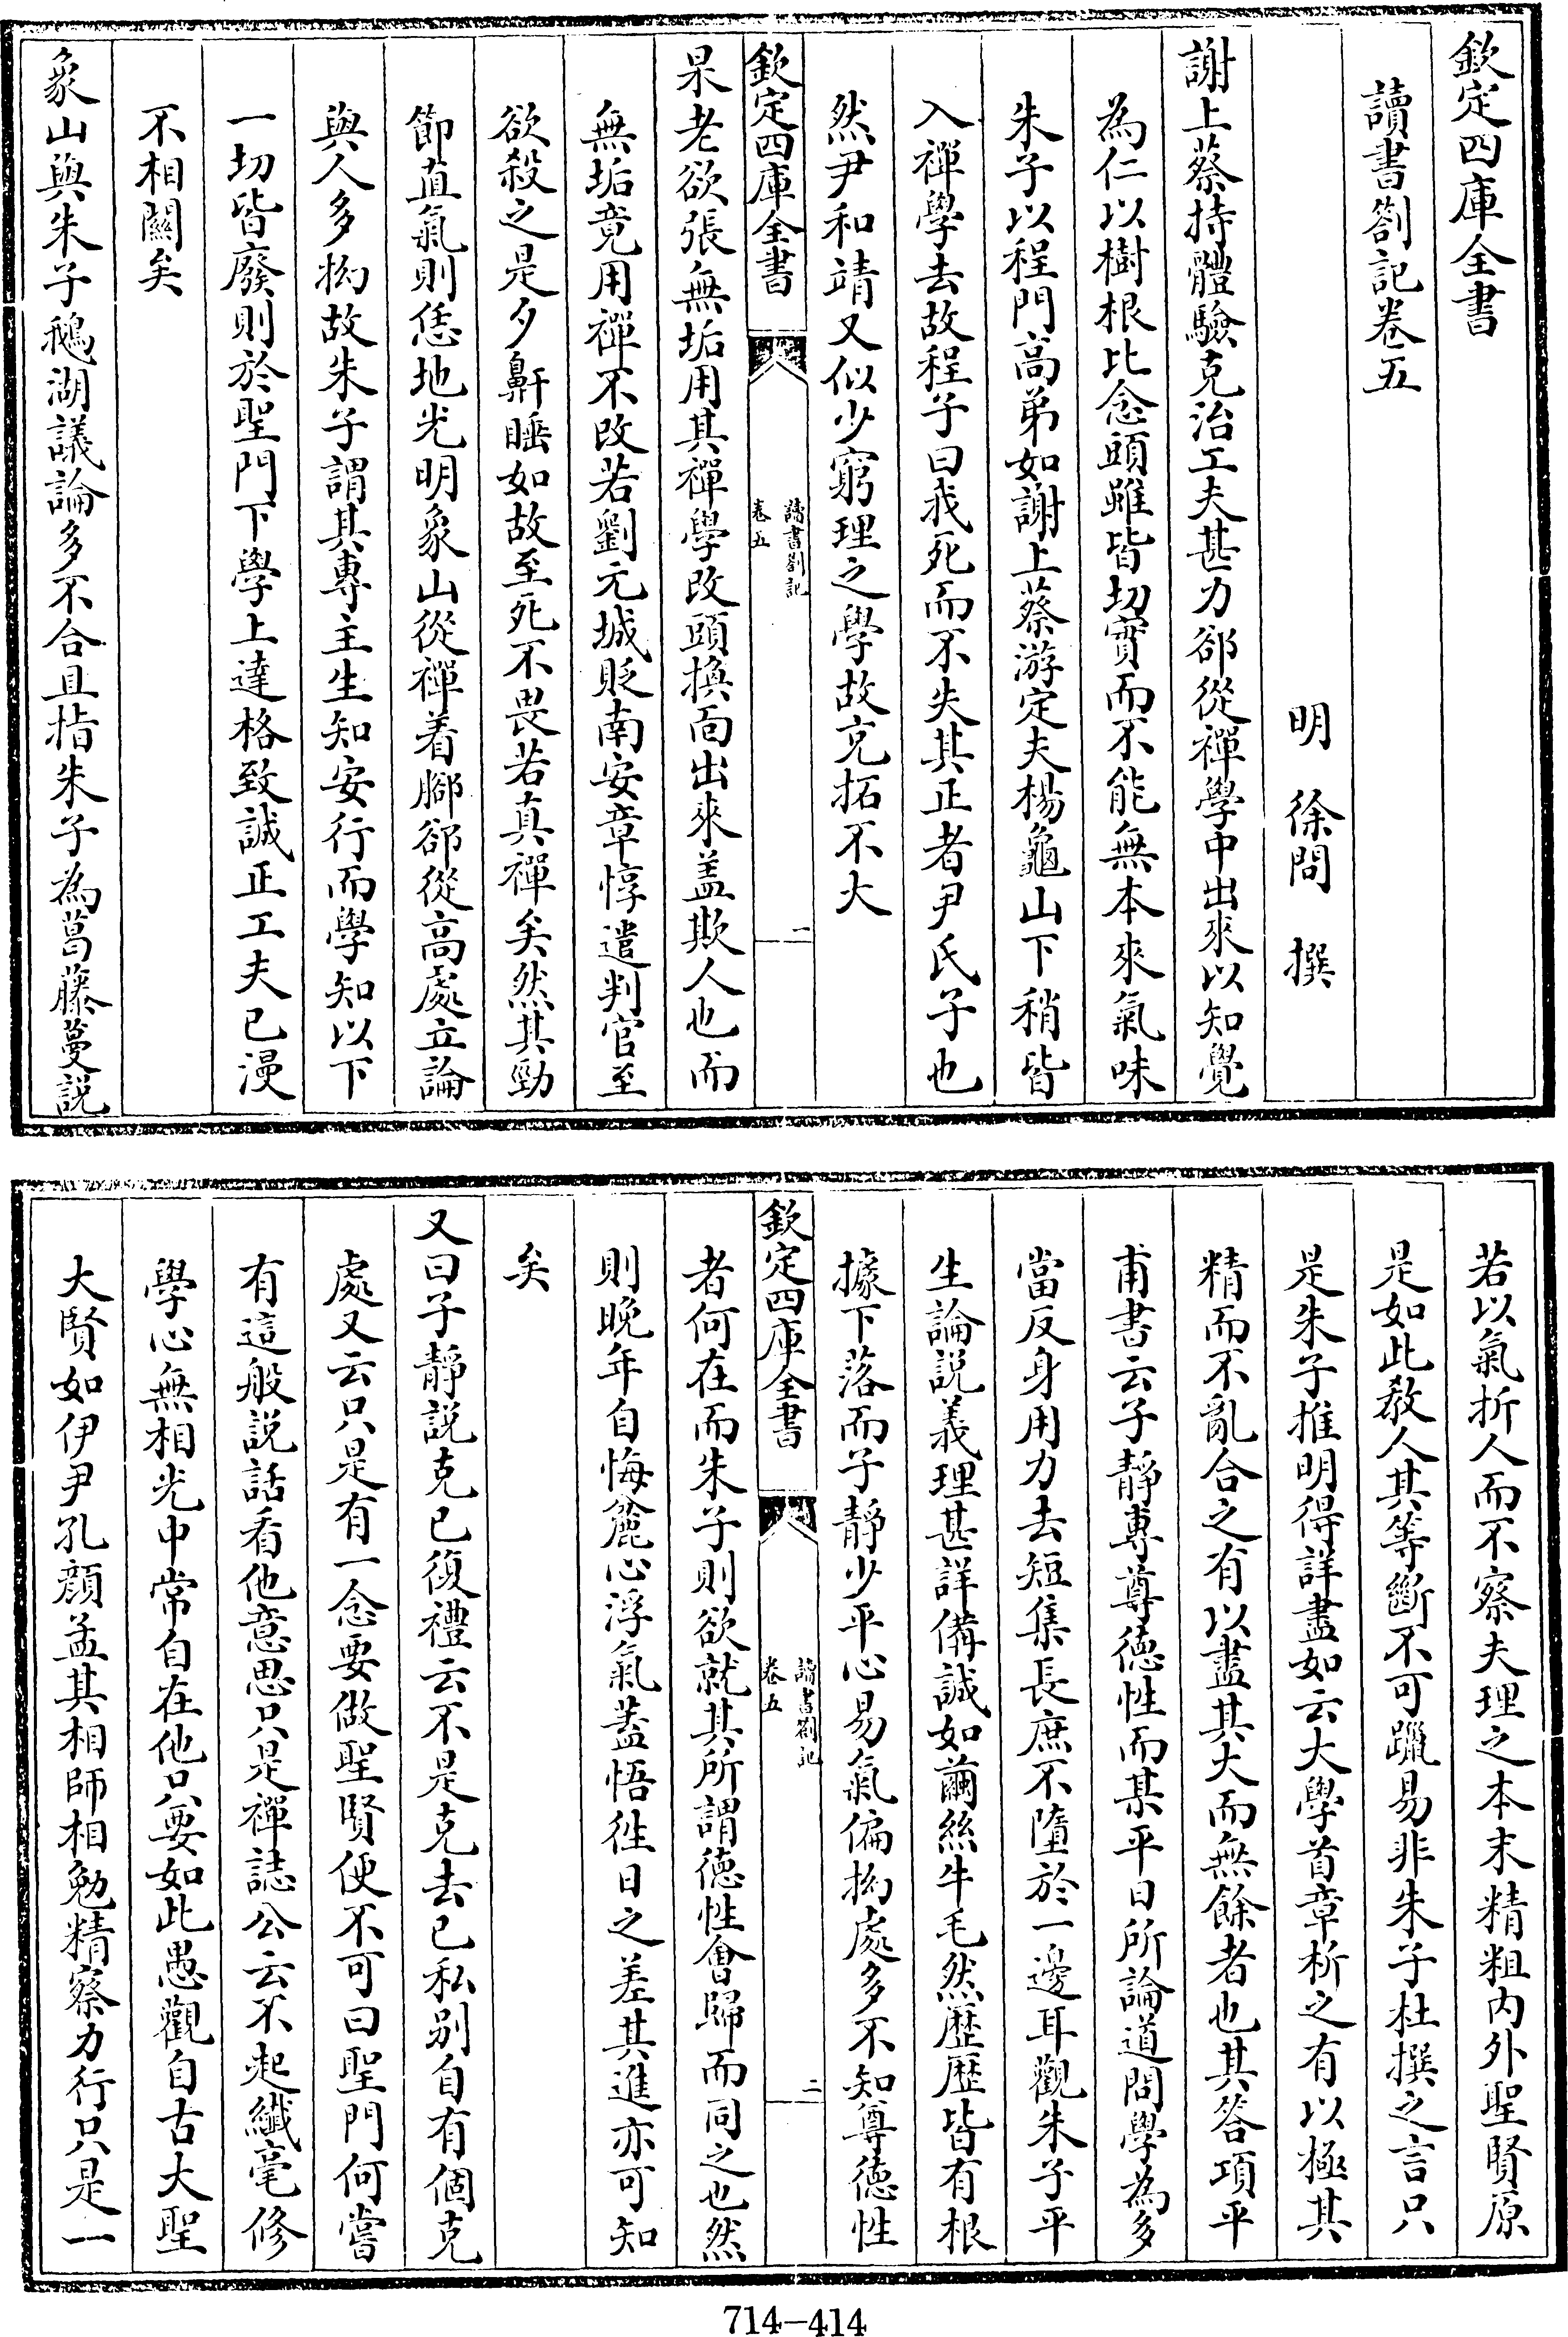 欽定四庫全書
讀書劄記卷五
明 徐問 撰
謝上蔡持體驗克治工夫甚力郤從禪學中出來以知覺
為仁以樹根比念頭雖皆切實而不能無本來氣味
朱子以程門高弟如謝上蔡游定夫楊龜山下稍皆
入禪學去故程子曰我死而不失其正者尹氏子也
然尹和靖又似少窮理之學故充拓不大
欽定四庫全書
讀書劄記
卷五
一
杲老欲張無垢用其禪學改頭換面出來盖欺人也而
無垢竟用禪不改若劉元城貶南安章惇遣判官至
欲殺之是夕鼾睡如故至死不畏若真禪矣然其勁
節直氣則恁地光明象山從禪着腳郤從高處立論
與人多拗故朱子謂其專主生知安行而學知以下
一切皆廢則於聖門下學上達格致誠正工夫已漫
不相關矣
象山與朱子鵝湖議論多不合且指朱子為葛藤蔓説
若以氣折人而不察夫理之本末精粗内外聖賢原
是如此教人其等斷不可躐易非朱子杜撰之言只
是朱子推明得詳盡如云大學首章析之有以極其
精而不亂合之有以盡其大而無餘者也其答項平
甫書云子靜專尊徳性而某平日所論道問學為多
當反身用力去短集長庶不墮於一邊耳觀朱子平
生論説義理甚詳備誠如繭絲牛毛然歴歴皆有根
據下落而子靜少平心易氣偏拗處多不知尊徳性
欽定四庫全書
讀書劄記
卷五
二
者何在而朱子則欲就其所謂徳性會歸而同之也然
則晚年自悔麄心浮氣葢悟徃日之差其進亦可知
矣
又曰子靜説克已復禮云不是克去已私别自有個克
處又云只是有一念要做聖賢便不可曰聖門何嘗
有這般説話看他意思只是禪誌公云不起纎毫修
學心無相光中常自在他只要如此愚觀自古大聖
大賢如伊尹孔顔孟其相師相勉精察力行只是一
714-414